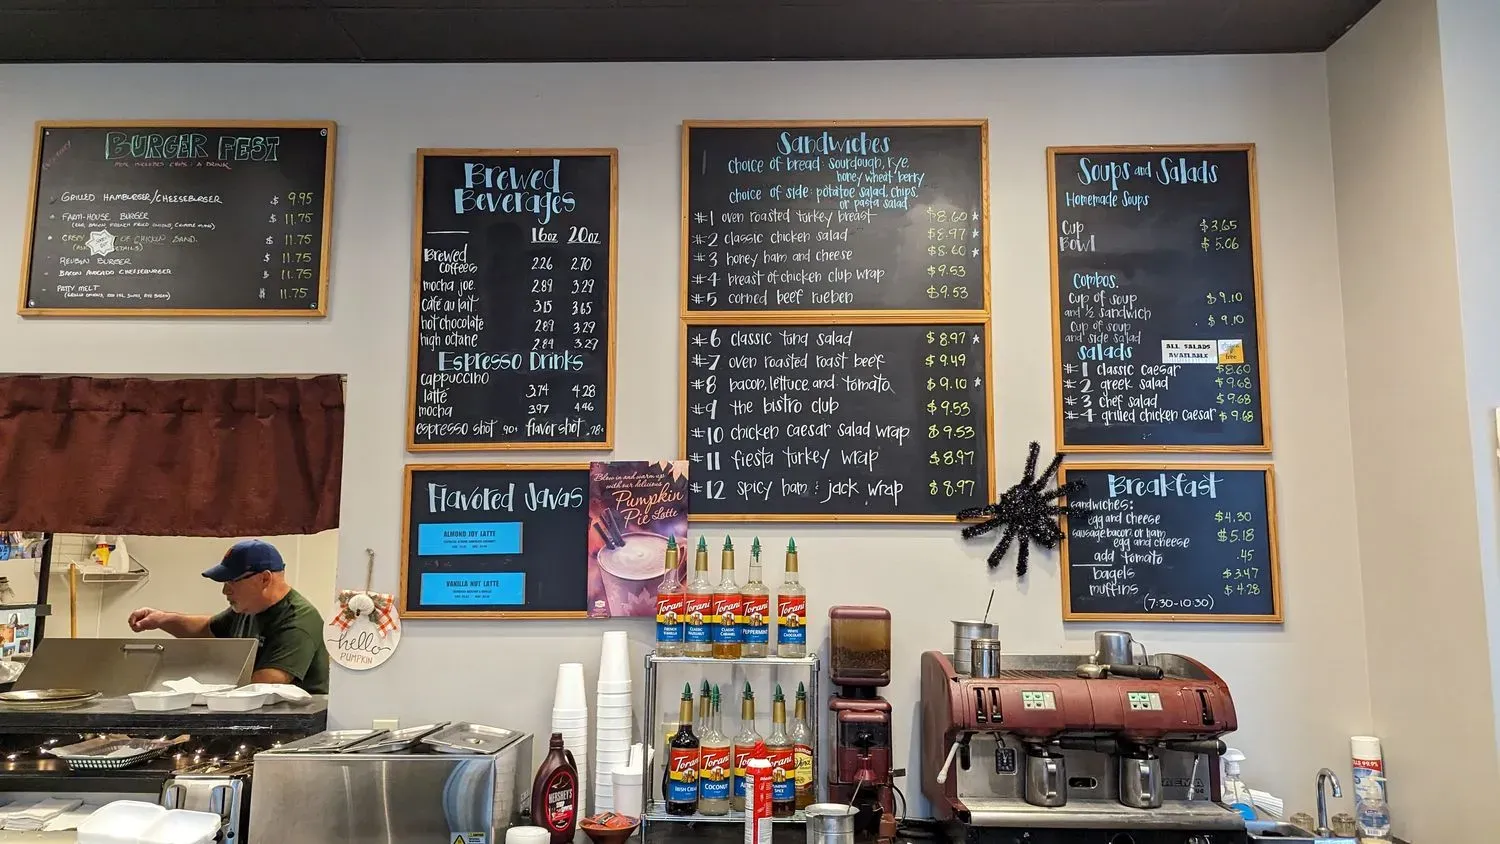 BURGER FEST
MEAL INCLUDES CHIPS & A DRINK
GRILLED HAMBURGER/CHEESEBURGER $ 9.95
FARM-HOUSE BURGER $ 11.75
OF CHICKEN SAND. $ 11.75
REUBEN BURGER $ 11.75
BACON AVOCADO CHEESEBURGER $ 11.75
PATTY MELT $ 11.75
Brewed
Beverages
16oz 20oz
Brewed
coffees 2.26 2.70
mocha joe 2.89 3.29
café au lait 3.15 3.65
hot chocolate 2.89 3.29
high octane 2.89 3.29
Espresso Drinks
cappuccino
latte 3.74 4.28
mocha 3.97 4.46
espresso shot .90¢ flavor shot .78¢
Flavored Javas
ALMOND JOY LATTE
VANILLA NUT LATTE
Blow in and warm up
with our delicious
Pumpkin
Pie Latte
Sandwiches
choice of bread: sourdough, rye,
honey wheat berry
choice of side: potatoe salad, chips,
or pasta salad
#1 oven roasted turkey breast $8.60 *
#2 classic chicken salad $8.97 *
#3 honey ham and cheese $8.60 *
#4 breast of chicken club wrap $9.53
#5 corned beef rueben $9.53
#6 classic tuna salad $8.97 *
#7 oven roasted roast beef $9.49
#8 bacon, lettuce, and tomato $9.10 *
#9 the bistro club $9.53
#10 chicken caesar salad wrap $9.53
#11 fiesta turkey wrap $8.97
#12 spicy ham & jack wrap $8.97
Soups and Salads
Homemade Soups
Cup $3.65
Bowl $5.06
Combos:
Cup of soup
and ½ sandwich $9.10
Cup of soup
and side salad $9.10
salads
ALL SALADS
AVAILABLE
free
#1 classic caesar $8.60
#2 greek salad $9.68
#3 chef salad $9.68
#4 grilled chicken caesar $9.68
Breakfast
sandwiches:
egg and cheese $4.30
sausage, bacon, or ham,
egg and cheese $5.18
add tomato .45
bagels $3.47
muffins $4.28
(7:30-10:30)
hello
PUMPKIN
Torani Torani Torani Torani Torani
FRENCH VANILLA
CLASSIC HAZELNUT
CLASSIC CARAMEL
PEPPERMINT
WHITE CHOCOLATE
Torani Torani Torani Torani
IRISH CREAM
COCONUT
HERSHEY'S